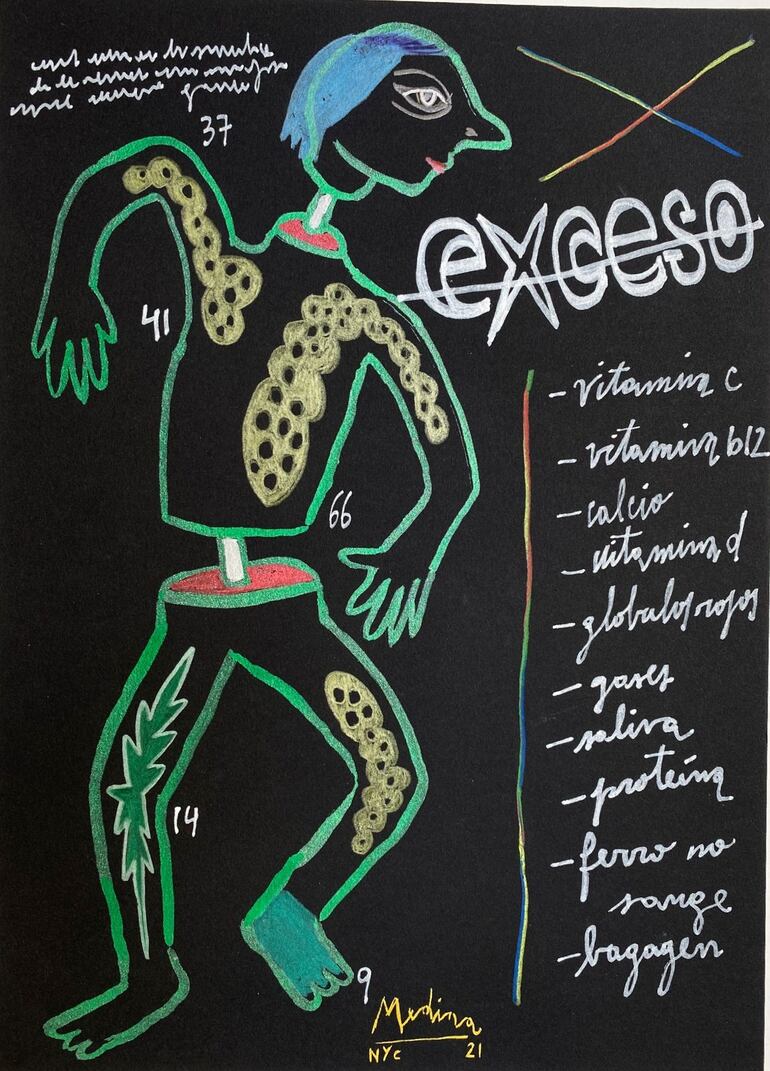 37
exceso
41
- vitamina c
- vitamina b12
- calcio
- vitamina d
66
- globalos rojos
- gases
- saliva
- proteína
14
- ferro no
sange
- bagagen
9
Medina
NYC 21